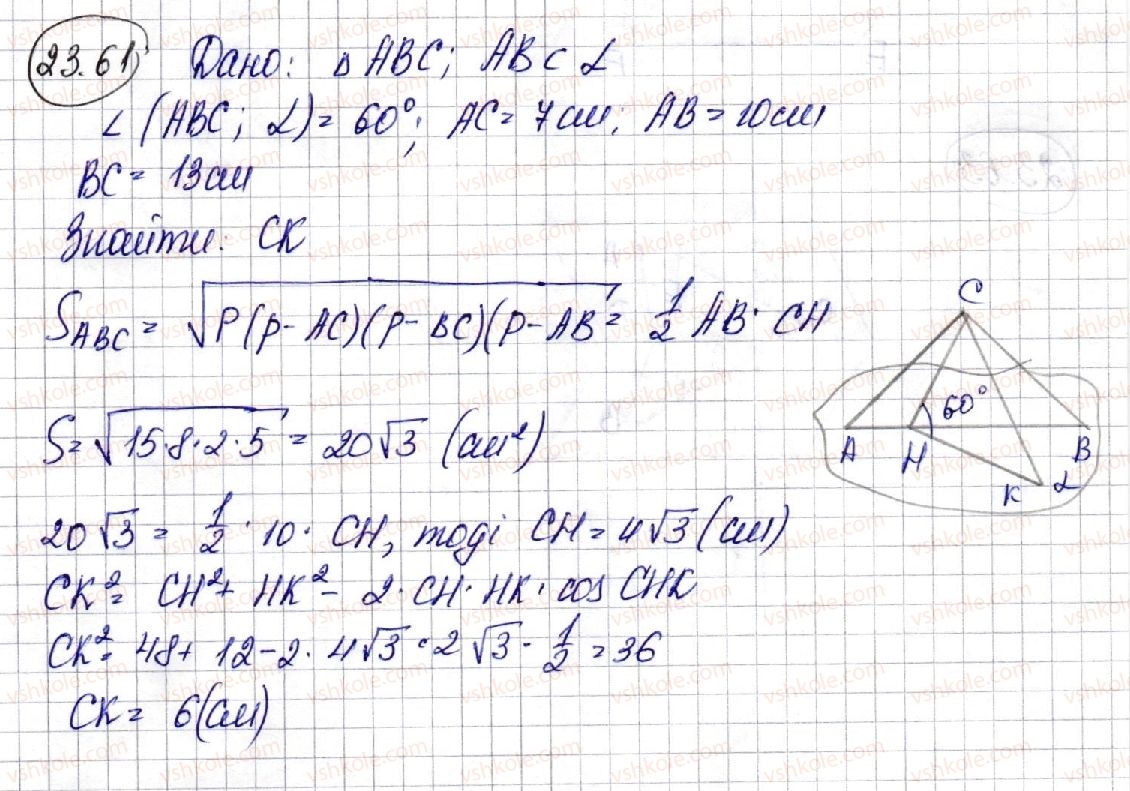 23.61
Дано: Δ ABC; AB ⊂ α
∠ (ABC; α) = 60°; AC = 7 см; AB = 10 см
BC = 13 см
Знайти: CK
S ABC = √P(p - AC)(p - BC)(p - AB = 1/2 AB · CH
S = √15·8·2·5 = 20√3 (см²)
20√3 = 1/2 · 10 · CH, тоді CH = 4√3 (см)
CK² = CH² + HK² - 2 · CH · HK · cos CHK
CK² = 48 + 12 - 2 · 4√3 · 2√3 · 1/2 = 36
CK = 6 (см)
C
60°
A H B
K α
vshkole.com